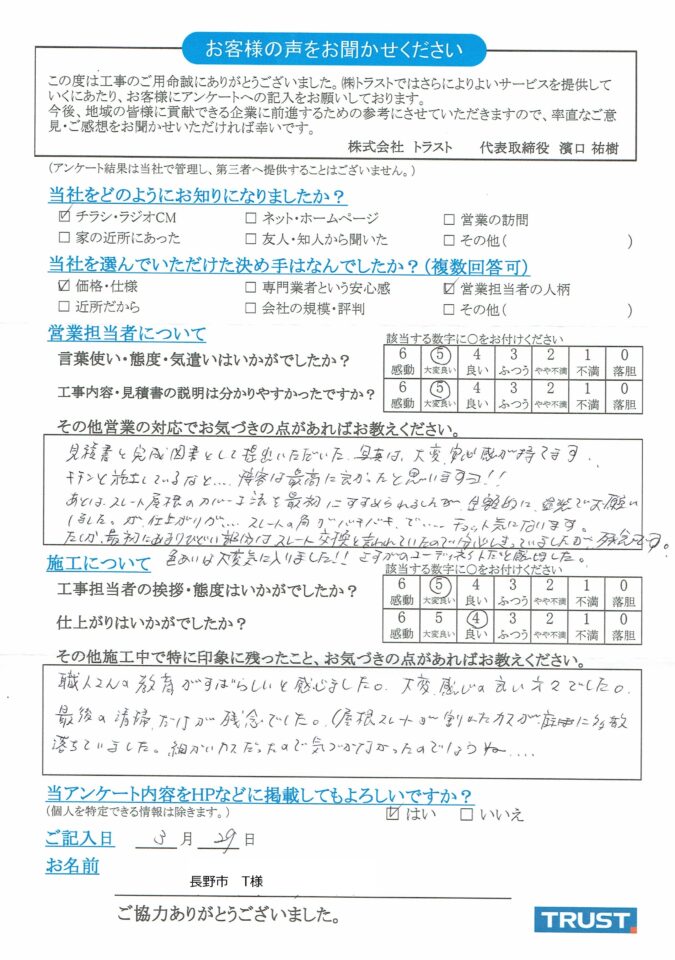 お客様の声をお聞かせください
この度は工事のご用命誠にありがとうございました。㈱トラストではさらによりよいサービスを提供して
いくにあたり、お客様にアンケートへの記入をお願いしております。
今後、地域の皆様に貢献できる企業に前進するための参考にさせていただきますので、率直なご意
見・ご感想をお聞かせいただければ幸いです。
株式会社 トラスト 代表取締役 濱口 祐樹
(アンケート結果は当社で管理し、第三者へ提供することはございません。)
当社をどのようにお知りになりましたか？
☑ チラシ・ラジオCM □ ネット・ホームページ □ 営業の訪問
□ 家の近所にあった □ 友人・知人から聞いた □ その他( )
当社を選んでいただけた決め手はなんでしたか？(複数回答可)
☑ 価格・仕様 □ 専門業者という安心感 ☑ 営業担当者の人柄
□ 近所だから □ 会社の規模・評判 □ その他( )
営業担当者について
該当する数字に○をお付けください
言葉使い・態度・気遣いはいかがでしたか？
6 ⑤ 4 3 2 1 0
感動 大変良い 良い ふつう やや不満 不満 落胆
工事内容・見積書の説明は分かりやすかったですか？
6 ⑤ 4 3 2 1 0
感動 大変良い 良い ふつう やや不満 不満 落胆
その他営業の対応でお気づきの点があればお教えください。
見積書と完成図書として提出いただいた写真は、大変、安心感が持てます。
キチンと施工しているなと… 接客は最高に良かったと思いますヨ!!
あとは、スレート屋根のカバー工法を最初にすすめられましたが 金額的に、塗装でお願い
しました。が、仕上がりが… スレートの角がバキバキ、で… チョット気になります。
たしか、最初にあまりひどい部分はスレート交換と言われていたので安心しきっていましたが、残念です。
色あいは大変気に入りました!! さすがのコーディネイトだと感心した。
施工について
該当する数字に○をお付けください
工事担当者の挨拶・態度はいかがでしたか？
6 ⑤ 4 3 2 1 0
感動 大変良い 良い ふつう やや不満 不満 落胆
仕上がりはいかがでしたか？
6 5 ④ 3 2 1 0
感動 大変良い 良い ふつう やや不満 不満 落胆
その他施工中で特に印象に残ったこと、お気づきの点があればお教えください。
職人さんの教育がすばらしいと感じました。大変、感じの良い方々でした。
最後の清掃だけが残念でした。(屋根スレートが割れたカスが庭に多数
落ちていました。細かいカスだったので気づかなかったのでしょうね….
当アンケート内容をHPなどに掲載してもよろしいですか？
(個人を特定できる情報は除きます。) ☑ はい □ いいえ
ご記入日 3 月 29 日
お名前
長野市 T様
ご協力ありがとうございました。
TRUST.